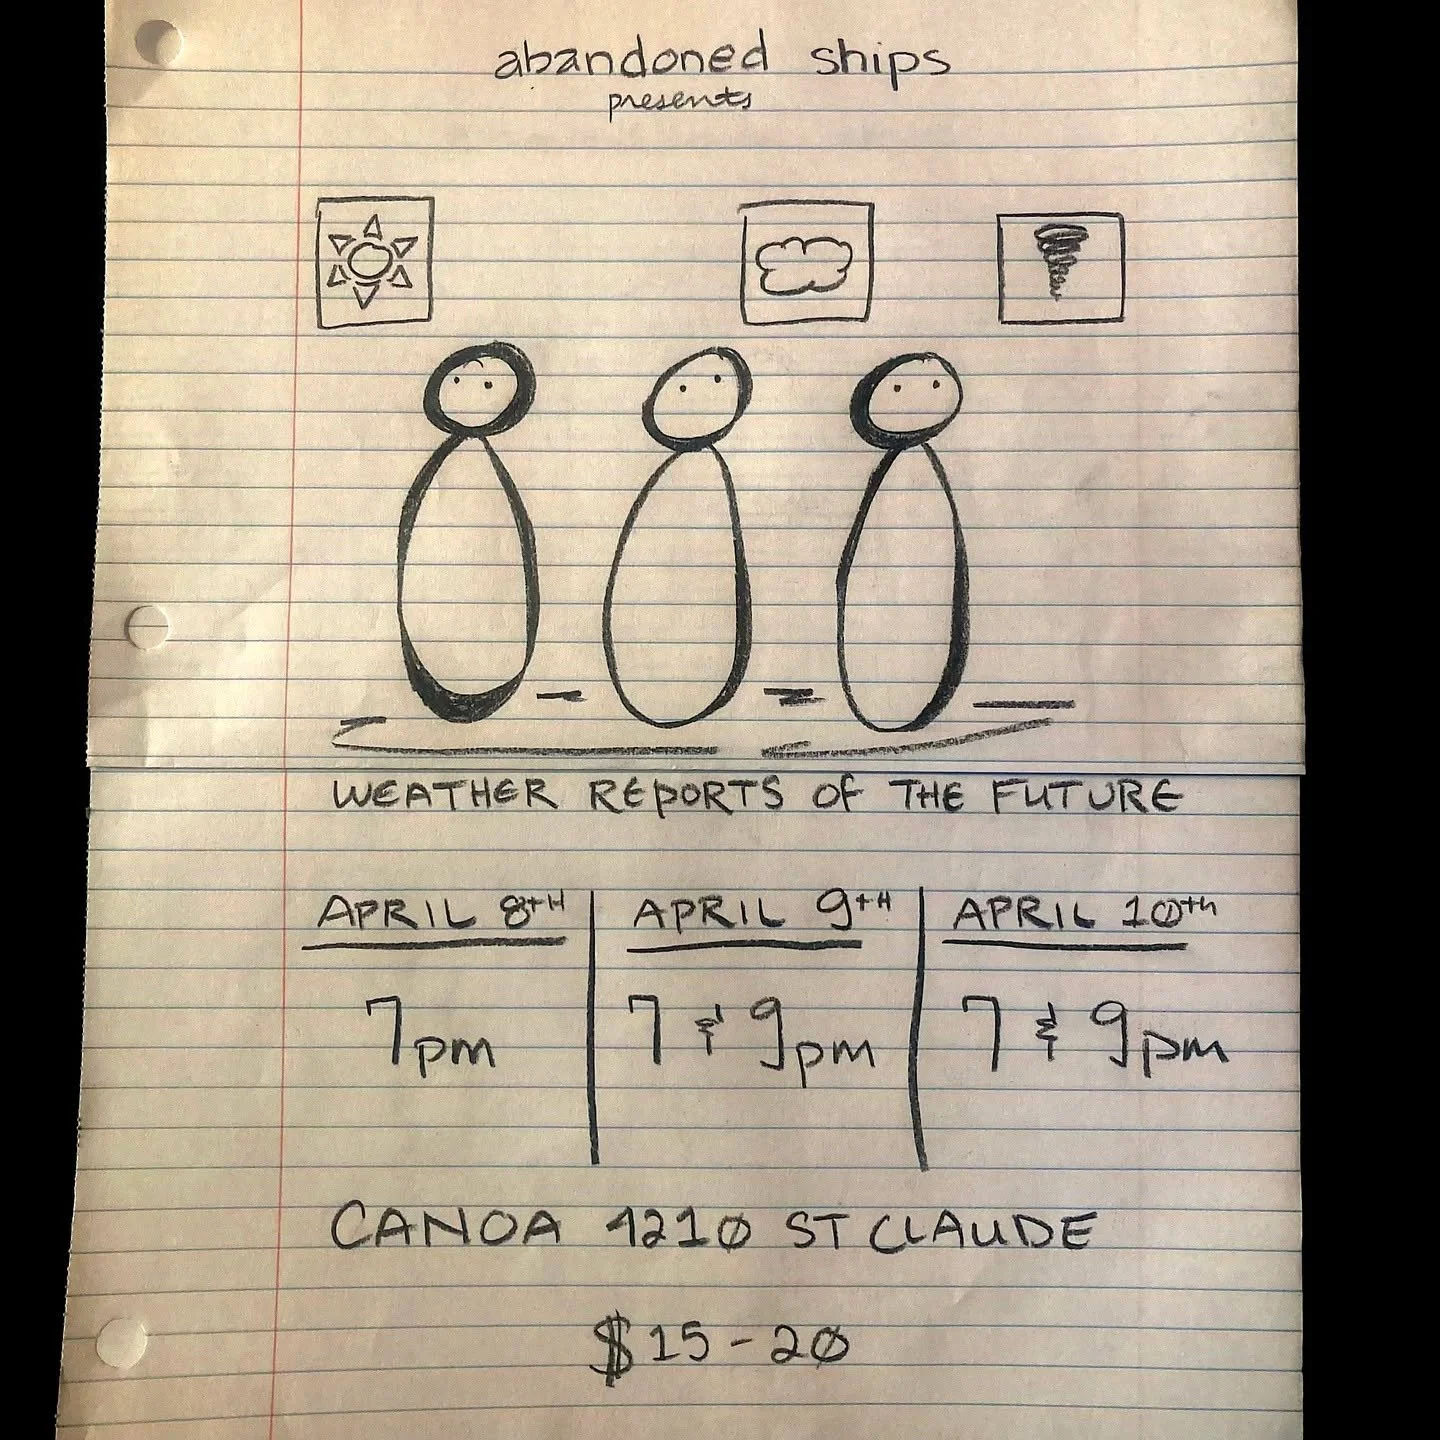 abandoned ships
presents
WEATHER REPORTS OF THE FUTURE
APRIL 8TH
7pm
APRIL 9TH
7 & 9pm
APRIL 10th
7 & 9pm
CANOA 4210 ST CLAUDE
$15-20